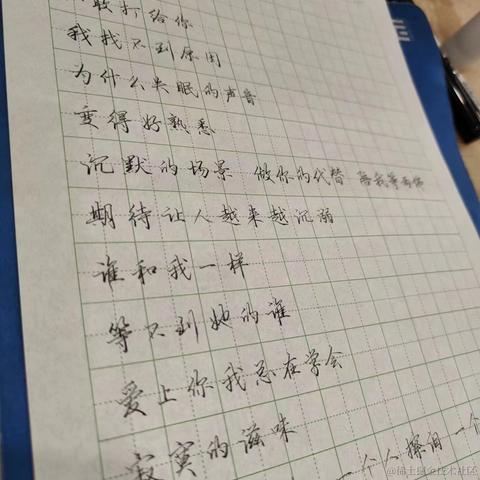 敢打给你
我找不到原因
为什么失眠的声音
变得好熟悉
沉默的场景 做你的代替 陪我等雨停
期待让人越来越沉弱
谁和我一样
等不到她的谁
爱上你我总在学会
寂寞的滋味
一个人擦泪 一个
@稀土掘金技术社区